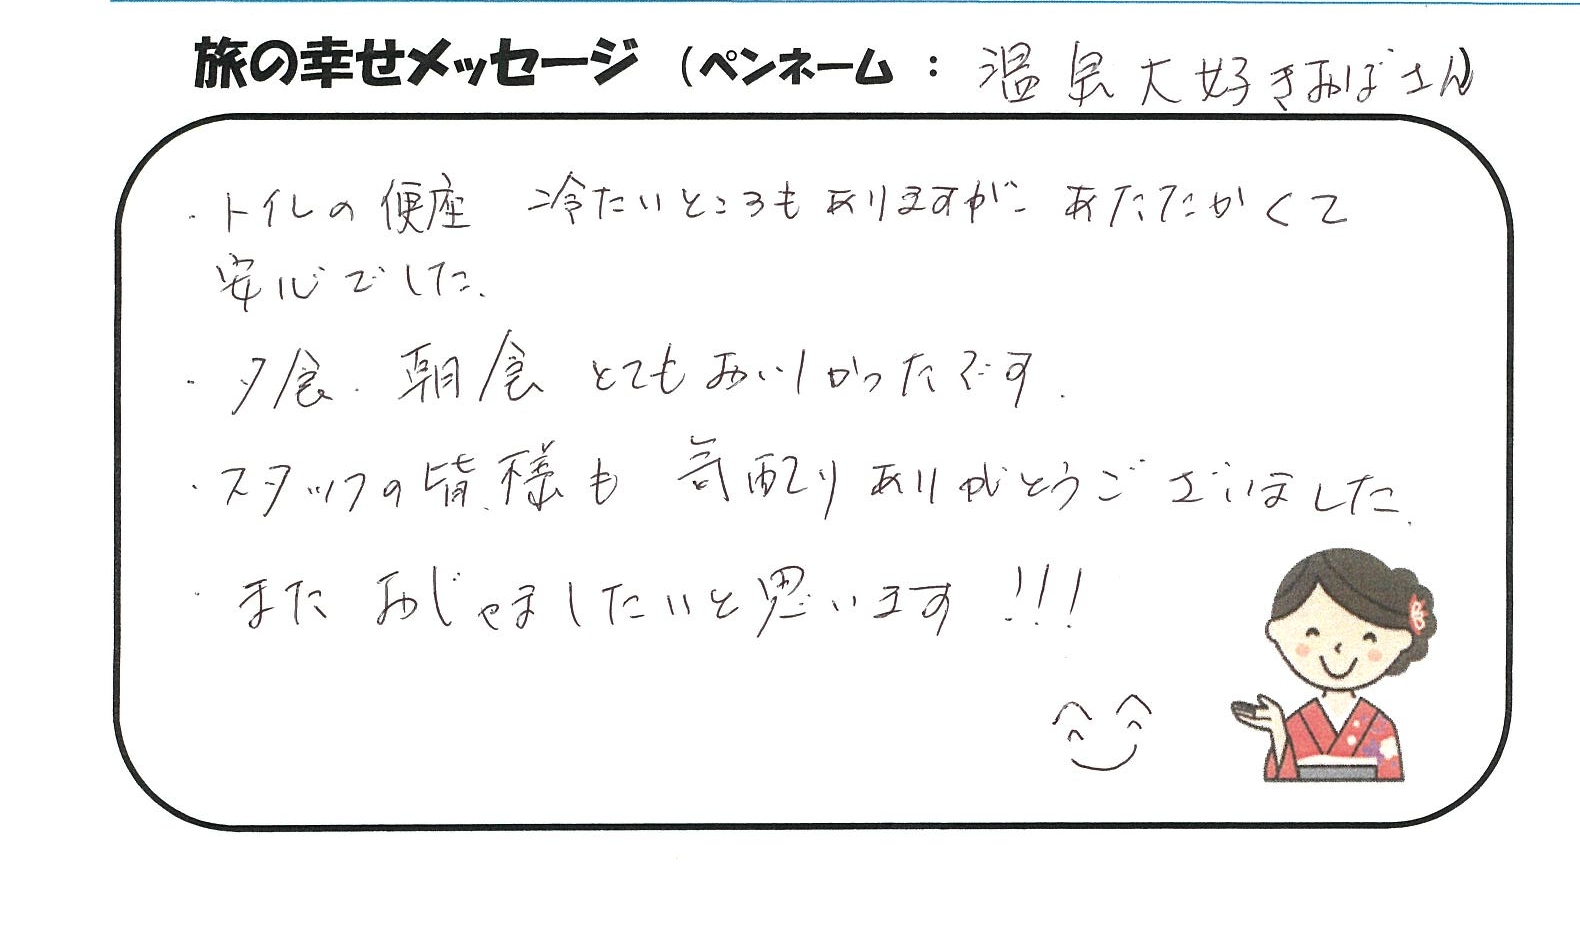 旅の幸せメッセージ (ペンネーム : 温泉大好きおばさん)
・トイレの便座 冷たいところもありますが、あたたかくて
安心でした。
・夕食、朝食とてもおいしかったです。
・スタッフの皆様も気配りありがとうございました。
・またおじゃましたいと思います!!!